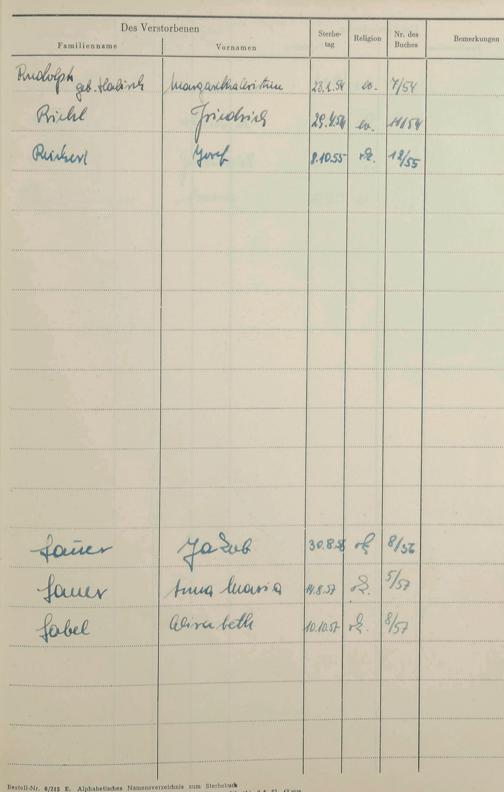 Des Verstorbenen
Familienname Vornamen Sterbe-tag Religion Nr. des Buches Bemerkungen
Rudolph 23.1.54 ev. 7/54
geb.
Riehl Friedrich 29.4.54 ev. 11/54
Reichert Josef 8.10.55 rk. 12/55
Sauer Jakob 30.8.56 rk 8/56
Sauer Anna Maria 14.8.57 rk. 5/57
Sabel Elisabeth 10.10.57 rk. 8/57
Bestell-Nr. 0/215 E. Alphabetisches Namensverzeichnis zum Sterbebuch